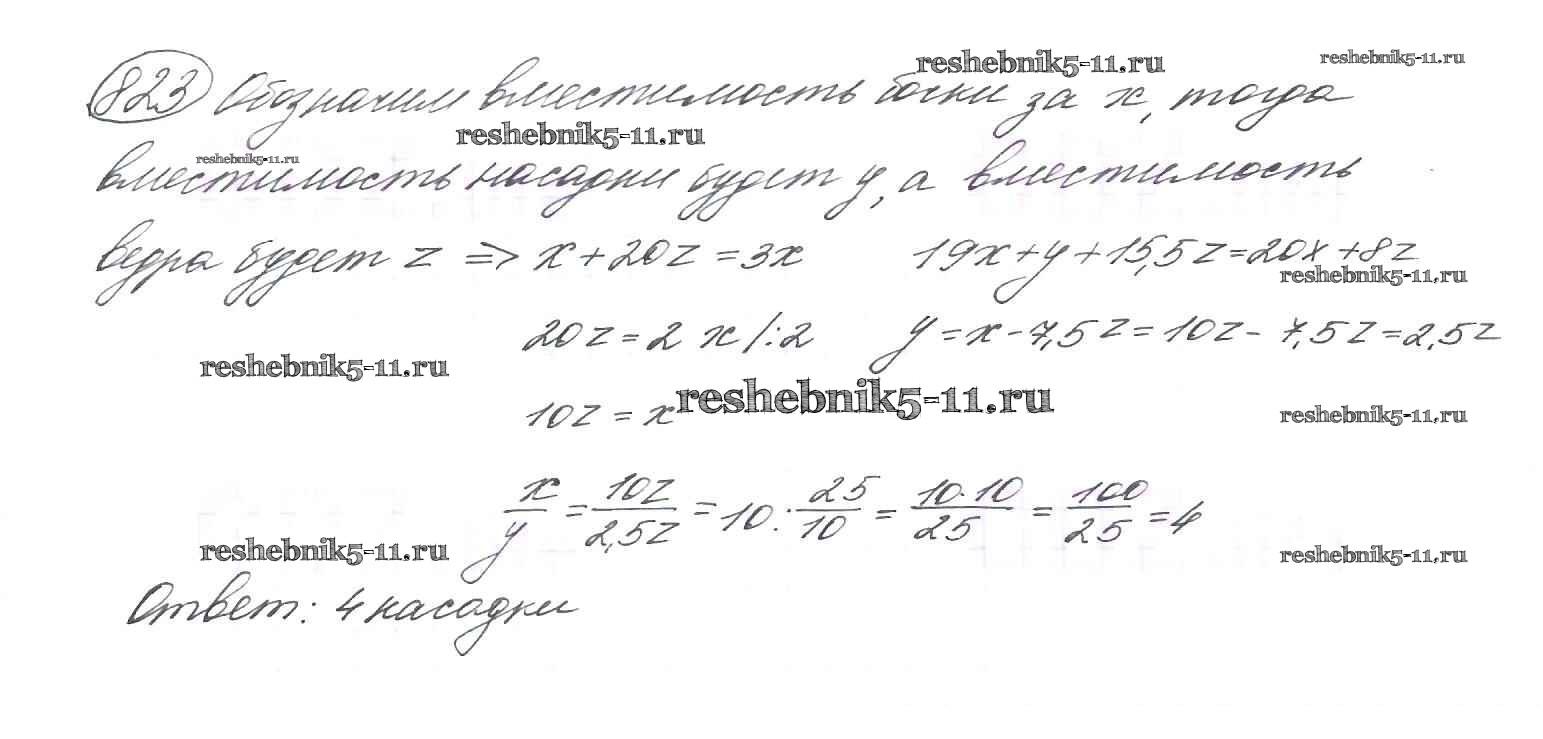 reshebnik5-11.ru
reshebnik5-11.ru
823 Обозначим вместимость бочки за x, тогда
reshebnik5-11.ru
reshebnik5-11.ru
вместимость насадки будет y, а вместимость
ведра будет z => x + 20z = 3x 19x + y + 15,5z = 20x + 8z
reshebnik5-11.ru
20z = 2x /:2 y = x - 7,5z = 10z - 7,5z = 2,5z
reshebnik5-11.ru
reshebnik5-11.ru
10z = x
reshebnik5-11.ru
x/y = 10z/2,5z = 10 : 25/10 = 10·10/25 = 100/25 = 4
reshebnik5-11.ru
reshebnik5-11.ru
Ответ: 4 насадки